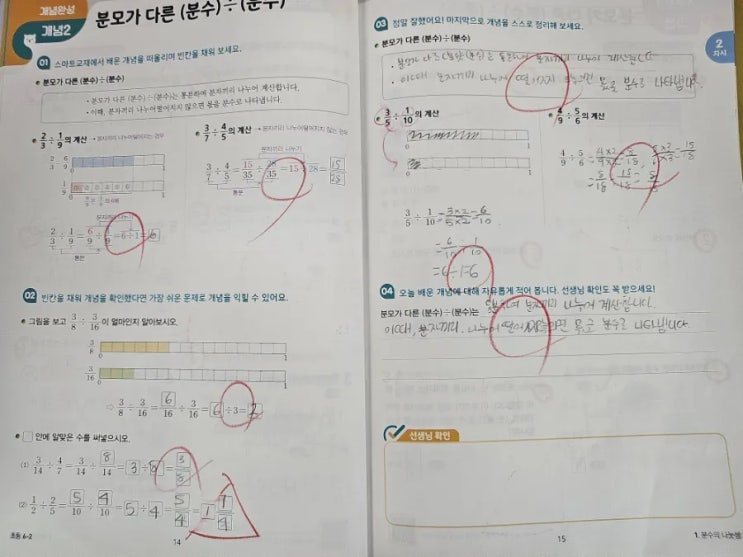 개념완성
개념2
분모가 다른 (분수)÷(분수)
01 스마트교재에서 배운 개념을 떠올리며 빈칸을 채워 보세요.
분모가 다른 (분수)÷(분수)
· 분모가 다른 (분수)÷(분수)는 통분하여 분자끼리 나누어 계산합니다.
· 이때, 분자끼리 나누어떨어지지 않으면 몫을 분수로 나타냅니다.
2/3÷1/9의 계산 → 분자끼리 나누어떨어지는 경우
2/3 6/9 0 1
1/9 0 1
분자끼리 나누기
2/3÷1/9=6/9÷1/9=6÷1=6
통분
3/7÷4/5의 계산 → 분자끼리 나누어떨어지지 않는 경우
분자끼리 나누기
3/7÷4/5=15/35÷28/35=15÷28=15/28
통분
02 빈칸을 채워 개념을 확인했다면 가장 쉬운 문제로 개념을 익힐 수 있어요.
그림을 보고 3/8÷3/16이 얼마인지 알아보시오.
3/8 0 1
3/16 0 1
⇨ 3/8÷3/16=6/16÷3/16=6÷3=2
□ 안에 알맞은 수를 써넣으시오.
(1) 3/14÷4/7=3/14÷8/14=3÷8=3/8
(2) 1/2÷2/5=5/10÷4/10=5÷4=5/4=1 1/4
초등 6-2
14
03 정말 잘했어요! 마지막으로 개념을 스스로 정리해 보세요.
2
차시
분모가 다른 (분수)÷(분수)
· 분모가 다른 분자끼리 나누어
· 이때 분자끼리 나누어 몫을 분수로 나타냅니다.
3/5÷1/10의 계산
0 1
0 1
3/5÷1/10=3×2/5×2=6/10
=6/10÷1/10
=6÷1=6
4/9÷5/6의 계산
4/9÷5/6=4×2/9×2=8/18, 5×3/6×3=15/18
=8/18÷15/18=8/15
04 오늘 배운 개념에 대해 자유롭게 적어 봅니다. 선생님 확인도 꼭 받으세요!
분모가 다른 (분수)÷(분수)는 통분하여 분자끼리 나누어 계산합니다.
이때, 분자끼리 나누어떨어지지 않으면 몫은 분수로 나타냅니다.
선생님 확인
15
1. 분수의 나눗셈